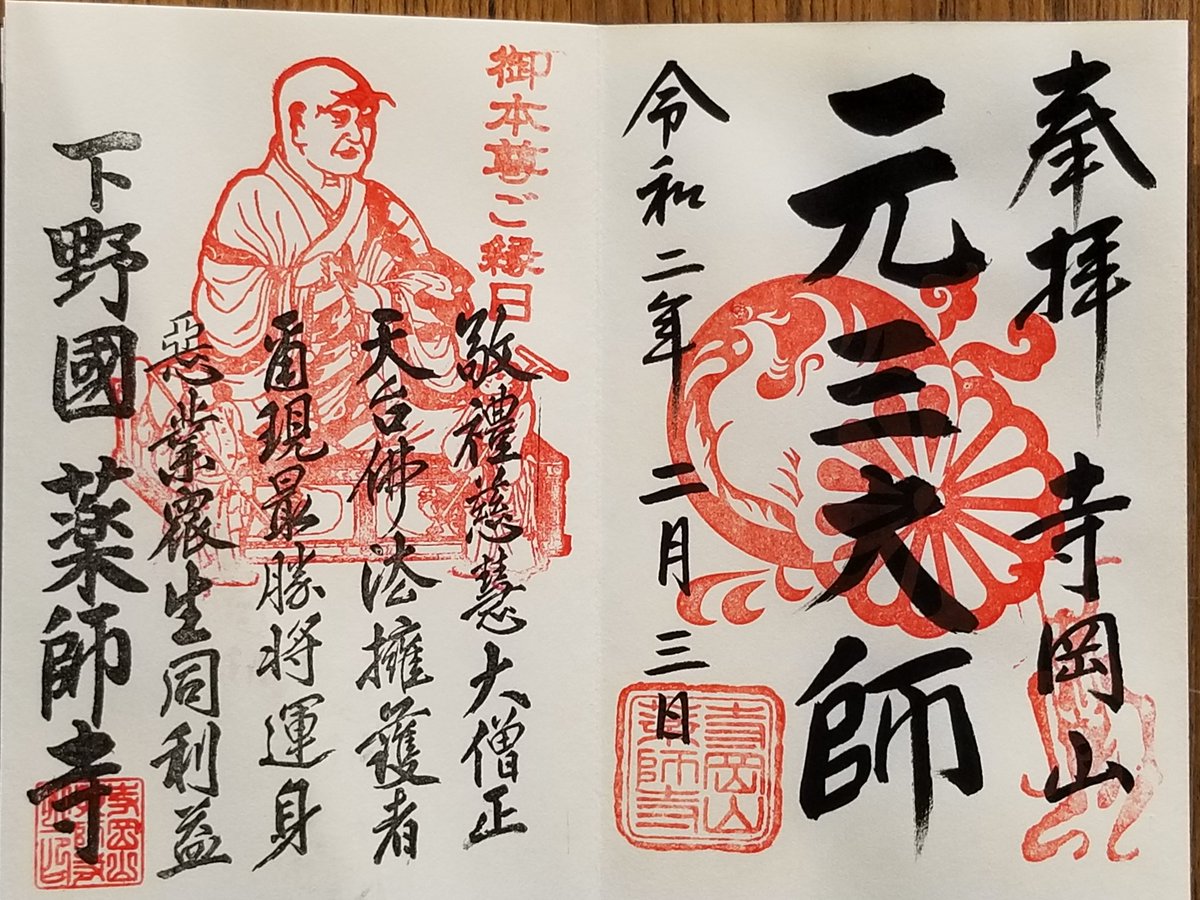 奉拝 寺岡山
元三大師
令和二年 二月 三日
寺岡山
薬師寺
御本尊ご縁日
敬禮慈慧大僧正
天台佛法擁護者
現最勝将運身
惡業衆生同利益
下野國 薬師寺